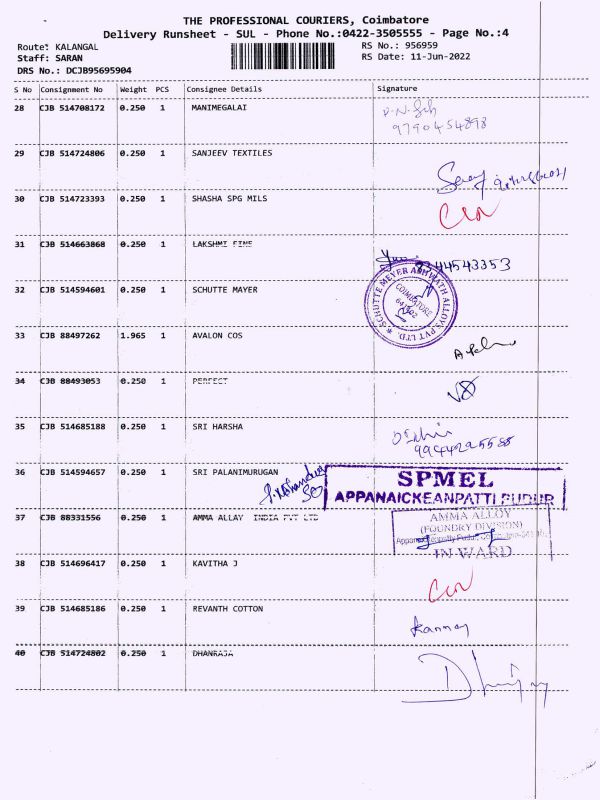 THE PROFESSIONAL COURIERS, Coimbatore
Delivery Runsheet - SUL - Phone No.:0422-3505555 - Page No.:4
Route: KALANGAL RS No.: 956959
Staff: SARAN RS Date: 11-Jun-2022
DRS No.: DCJB95695904
S No Consignment No Weight PCS Consignee Details Signature
28 CJB 514708172 0.250 1 MANIMEGALAI
9790454898
29 CJB 514724806 0.250 1 SANJEEV TEXTILES
30 CJB 514723393 0.250 1 SHASHA SPG MILS
31 CJB 514663868 0.250 1 LAKSHMI FINE
44543353
32 CJB 514594601 0.250 1 SCHUTTE MAYER
SCHUTTE MEYER ASHWATH ALLOYS PVT LTD.
COIMBATORE
33 CJB 88497262 1.965 1 AVALON COS
34 CJB 88493053 0.250 1 PERFECT
35 CJB 514685188 0.250 1 SRI HARSHA
36 CJB 514594657 0.250 1 SRI PALANIMURUGAN
SPMEL
APPANAICKEANPATTI PUDUR
37 CJB 88331556 0.250 1 AMMA ALLAY INDIA PVT LTD
AMMA ALLOY
(FOUNDRY DIVISION)
INWARD
38 CJB 514696417 0.250 1 KAVITHA J
39 CJB 514685186 0.250 1 REVANTH COTTON
Kannan
40 CJB 514724802 0.250 1 DHANRAJA